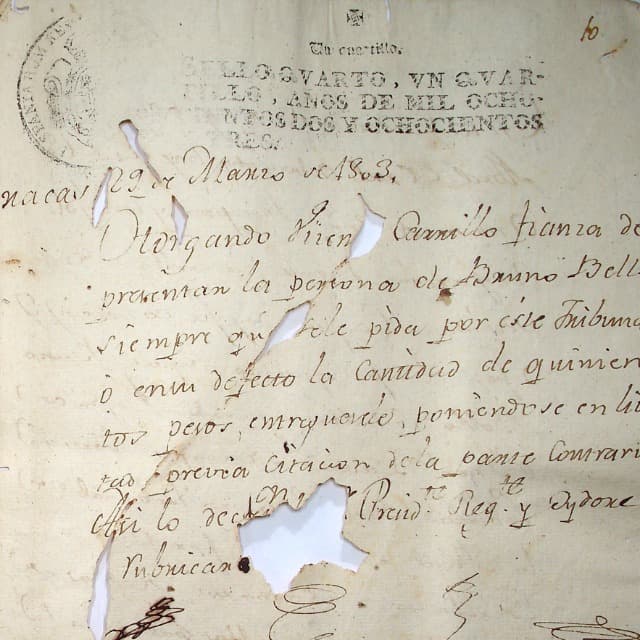 10
Un cuartillo.
SELLO QVARTO, VN QVAR-
TILLO, AÑOS DE MIL OCHO-
CIENTOS DOS Y OCHOCIENTOS
TRES.
racas 29 de Marzo de 1803.
Otorgando Vicen Carrillo fianza de
presentar la persona de Bruno Bell
siempre qu sele pida por este Tribuna
ó en su defecto la Cantidad de quinien
tos pesos, entreguesele, poniendose en li
tad previa citacion de la parte Contrari
Asi lo dec Presid.te Reg.te y Oydore
rubrican